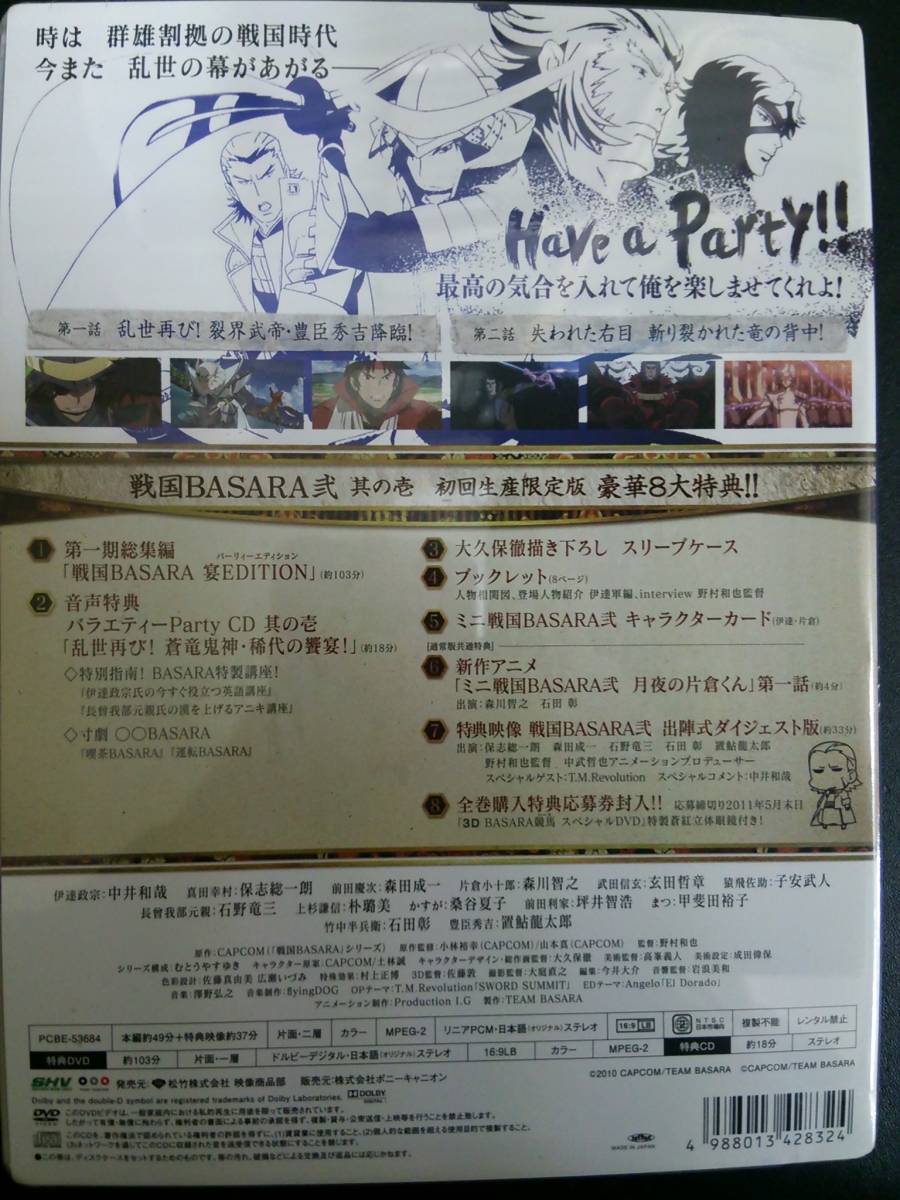 時は 群雄割拠の戦国時代
今また 乱世の幕があがる——
Have a Party!!
最高の気合を入れて俺を楽しませてくれよ!
第一話 乱世再び! 裂界武帝・豊臣秀吉降臨!
第二話 失われた右目 斬り裂かれた竜の背中!
戦国BASARA弐 其の壱 初回生産限定版 豪華8大特典!!
1 第一期総集編
パーリィーエディション
「戦国BASARA 宴EDITION」(約103分)
2 音声特典
バラエティーParty CD 其の壱
「乱世再び! 蒼竜鬼神・稀代の饗宴!」(約18分)
◇特別指南! BASARA特製講座!
『伊達政宗氏の今すぐ役立つ英語講座』
『長曾我部元親氏の漢を上げるアニキ講座』
◇寸劇 〇〇BASARA
『喫茶BASARA』『運転BASARA』
3 大久保徹描き下ろし スリーブケース
4 ブックレット(8ページ)
人物相関図、登場人物紹介 伊達軍編、interview 野村和也監督
5 ミニ戦国BASARA弐 キャラクターカード(伊達・片倉)
[通常版共通特典]
6 新作アニメ
「ミニ戦国BASARA弐 月夜の片倉くん」第一話(約4分)
出演:森川智之 石田 彰
7 特典映像 戦国BASARA弐 出陣式ダイジェスト版(約33分)
出演:保志総一朗 森田成一 石野竜三 石田 彰 置鮎龍太郎
野村和也監督 中武哲也アニメーションプロデューサー
スペシャルゲスト:T.M.Revolution スペシャルコメント:中井和哉
8 全巻購入特典応募券封入!! 応募締切り2011年5月末日
「3D BASARA競馬 スペシャルDVD」特製蒼紅立体眼鏡付き!
伊達政宗:中井和哉 真田幸村:保志総一朗 前田慶次:森田成一 片倉小十郎:森川智之 武田信玄:玄田哲章 猿飛佐助:子安武人
長曾我部元親:石野竜三 上杉謙信:朴璐美 かすが:桑谷夏子 前田利家:坪井智浩 まつ:甲斐田裕子
竹中半兵衛:石田彰 豊臣秀吉:置鮎龍太郎
原作:CAPCOM(「戦国BASARA」シリーズ) 原作監修:小林裕幸(CAPCOM)/山本真(CAPCOM) 監督:野村和也
シリーズ構成:むとうやすゆき キャラクター原案:CAPCOM/土林誠 キャラクターデザイン・総作画監督:大久保徹 美術監督:高峯義人 美術設定:成田偉保
色彩設計:佐藤真由美 広瀬いづみ 特殊効果:村上正博 3D監督:佐藤敦 撮影監督:大庭直之 編集:今井大介 音響監督:岩浪美和
音楽:澤野弘之 音楽制作:flyingDOG OPテーマ:T.M.Revolution「SWORD SUMMIT」 EDテーマ:Angelo「El Dorado」
アニメーション制作:Production I.G 製作:TEAM BASARA
PCBE-53684 本編約49分+特典映像約37分 片面・二層 カラー MPEG-2 リニアPCM・日本語(オリジナル)ステレオ 16:9 LB 2 NTSC 日本市場向 複製不能 レンタル禁止
特典DVD 約103分 片面・一層 ドルビーデジタル・日本語(オリジナル)ステレオ 16:9LB カラー MPEG-2 特典CD 約18分 ステレオ
©2010 CAPCOM/TEAM BASARA ©CAPCOM/TEAM BASARA
SHV 発売元: 松竹株式会社 映像商品部 販売元:株式会社ポニーキャニオン
Dolby and the double-D symbol are registered trademarks of Dolby Laboratories. DOLBY DIGITAL
DVD VIDEO このDVDビデオは、一般家庭内における私的再生に用途を限って販売されています。
したがって有償・無償に拘わらず、権利者の書面による事前の承諾を得ず、複製・貸与・公衆送信・上映等を行うことを禁止します。
このCDを、著作権法で認められている権利者の許諾を得ずに、(1)賃貸業に使用すること、(2)個人的な範囲を超える使用目的で複製すること、
(3)ネットワークを通じてこのCDに収録された音を送信できる状態にすることを禁じます。
●この帯は、ディスクケースをセットするためのものです。帯の汚れ、破損などによる交換及び返品には応じかねます。
MADE IN JAPAN
4 988013 428324